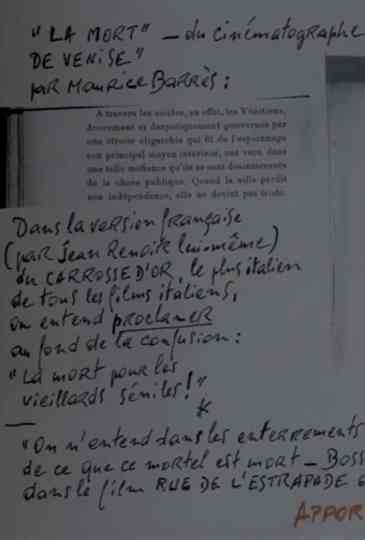 "LA MORT" – du cinématographe
DE VENISE"
par Maurice Barrès :
A travers les siècles, en effet, les Vénitiens,
durement et despotiquement gouvernés par
une étroite oligarchie qui fit de l'espionnage
son principal moyen intérieur, ont vécu dans
une telle méfiance qu'ils se sont désintéressés
de la chose publique. Quand la ville perdit
son indépendance, elle ne devint pas triste.
Dans la version française
(par Jean Renoir lui-même)
du CARROSSE D'OR, le plus italien
de tous les films italiens,
on entend proclamer
au fond de la confusion :
"La mort pour les
vieillards séniles !"
*
"On n'entend dans les enterrements
de ce que ce mortel est mort – BOSS
dans le film RUE DE L'ESTRAPADE
APPOR